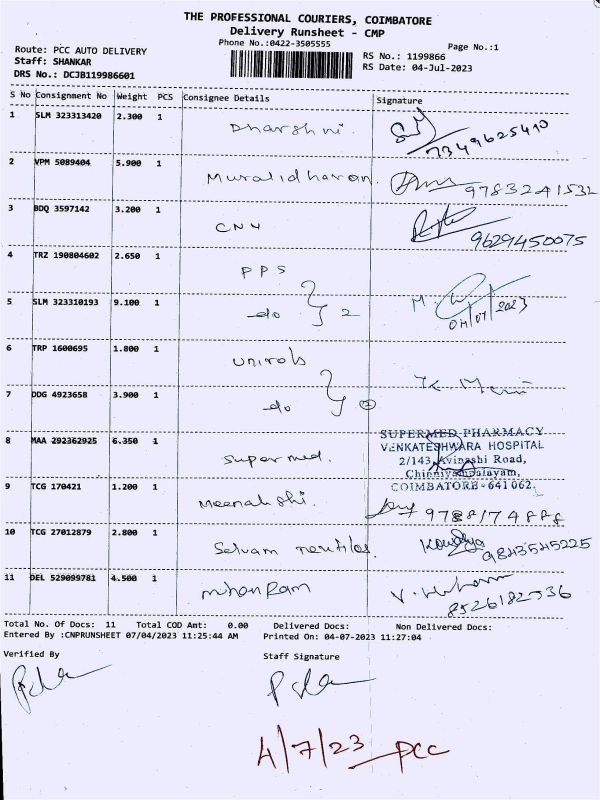 THE PROFESSIONAL COURIERS, COIMBATORE
Delivery Runsheet - CMP
Phone No.:0422-3505555
Page No.:1
Route: PCC AUTO DELIVERY
Staff: SHANKAR
DRS No.: DCJB119986601
RS No.: 1199866
RS Date: 04-Jul-2023
S No Consignment No Weight PCS Consignee Details Signature
1 SLM 323313420 2.300 1 Dharshni. 7349625410
2 VPM 5089404 5.900 1 Muralidharan. 9783241532
3 BDQ 3597142 3.200 1 CNH 9629450075
4 TRZ 190804602 2.650 1 PPS
5 SLM 323310193 9.100 1 do } 2 04/07/2023
6 TRP 1600695 1.800 1
7 DDG 4923658 3.900 1 do } 2
8 MAA 292362925 6.350 1 Supermed.
SUPERMED PHARMACY
VENKATESHWARA HOSPITAL
2/143, Avinashi Road,
Chinniyampalayam,
COIMBATORE - 641 062.
9 TCG 170421 1.200 1 Meenakshi.
10 TCG 27012879 2.800 1 Selvam 9843545225
11 DEL 529099781 4.500 1 8526182536
Total No. Of Docs: 11 Total COD Amt: 0.00 Delivered Docs: Non Delivered Docs:
Entered By :CNPRUNSHEET 07/04/2023 11:25:44 AM Printed On: 04-07-2023 11:27:04
Verified By Staff Signature
4/7/23 PCC